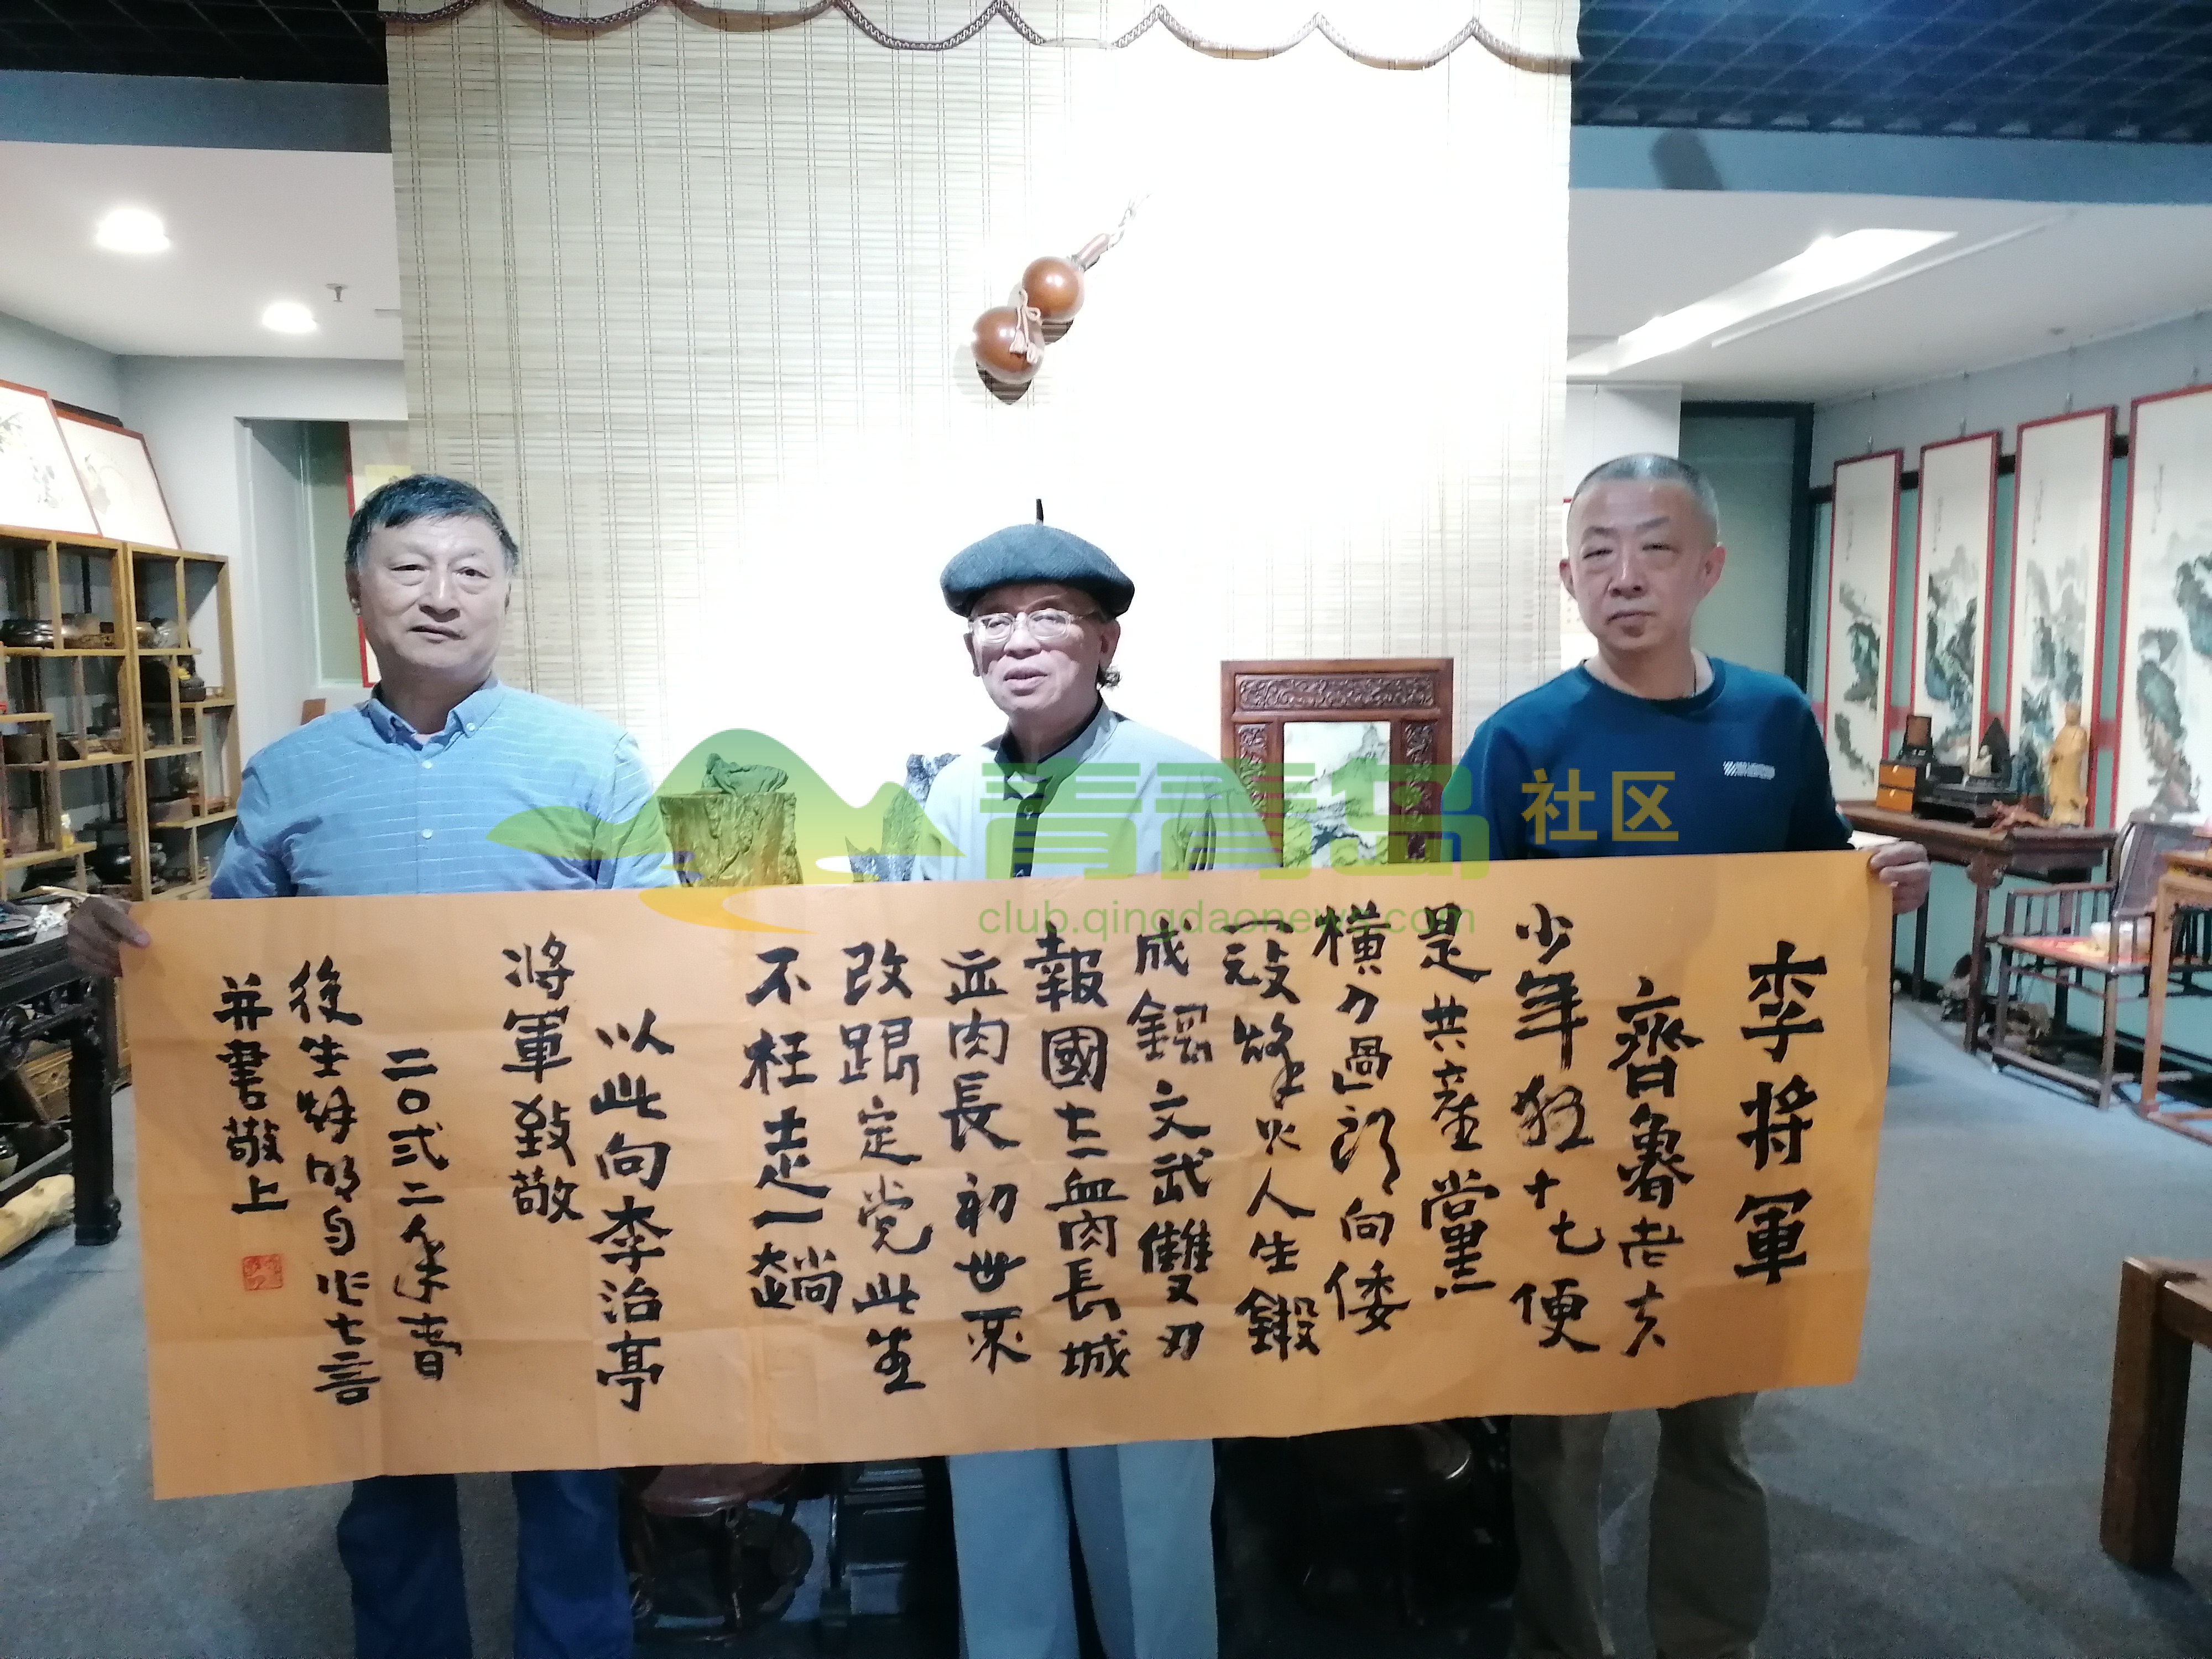 李将軍
齊魯老夫
少年狂十七便
是共產黨
橫刀高郎向倭
寇烽火人生鍛
成鋼文武雙刃
報國士血肉長城
血肉長初世不
改跟定党此生
不枉走一趟
以此向李治亭
將軍致敬
二〇弍二年春
後生
自作七言
并書敬上
青青岛社区
club.qingdaonews.com